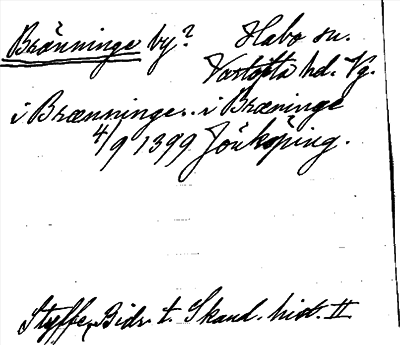 Bränninge by? Habo sn.
Vartofta hd. Vg.
i Brænninge. i Bræninge
4/9 1399 Jönköping.
Styffe, Bidr t. Skand. hist. II